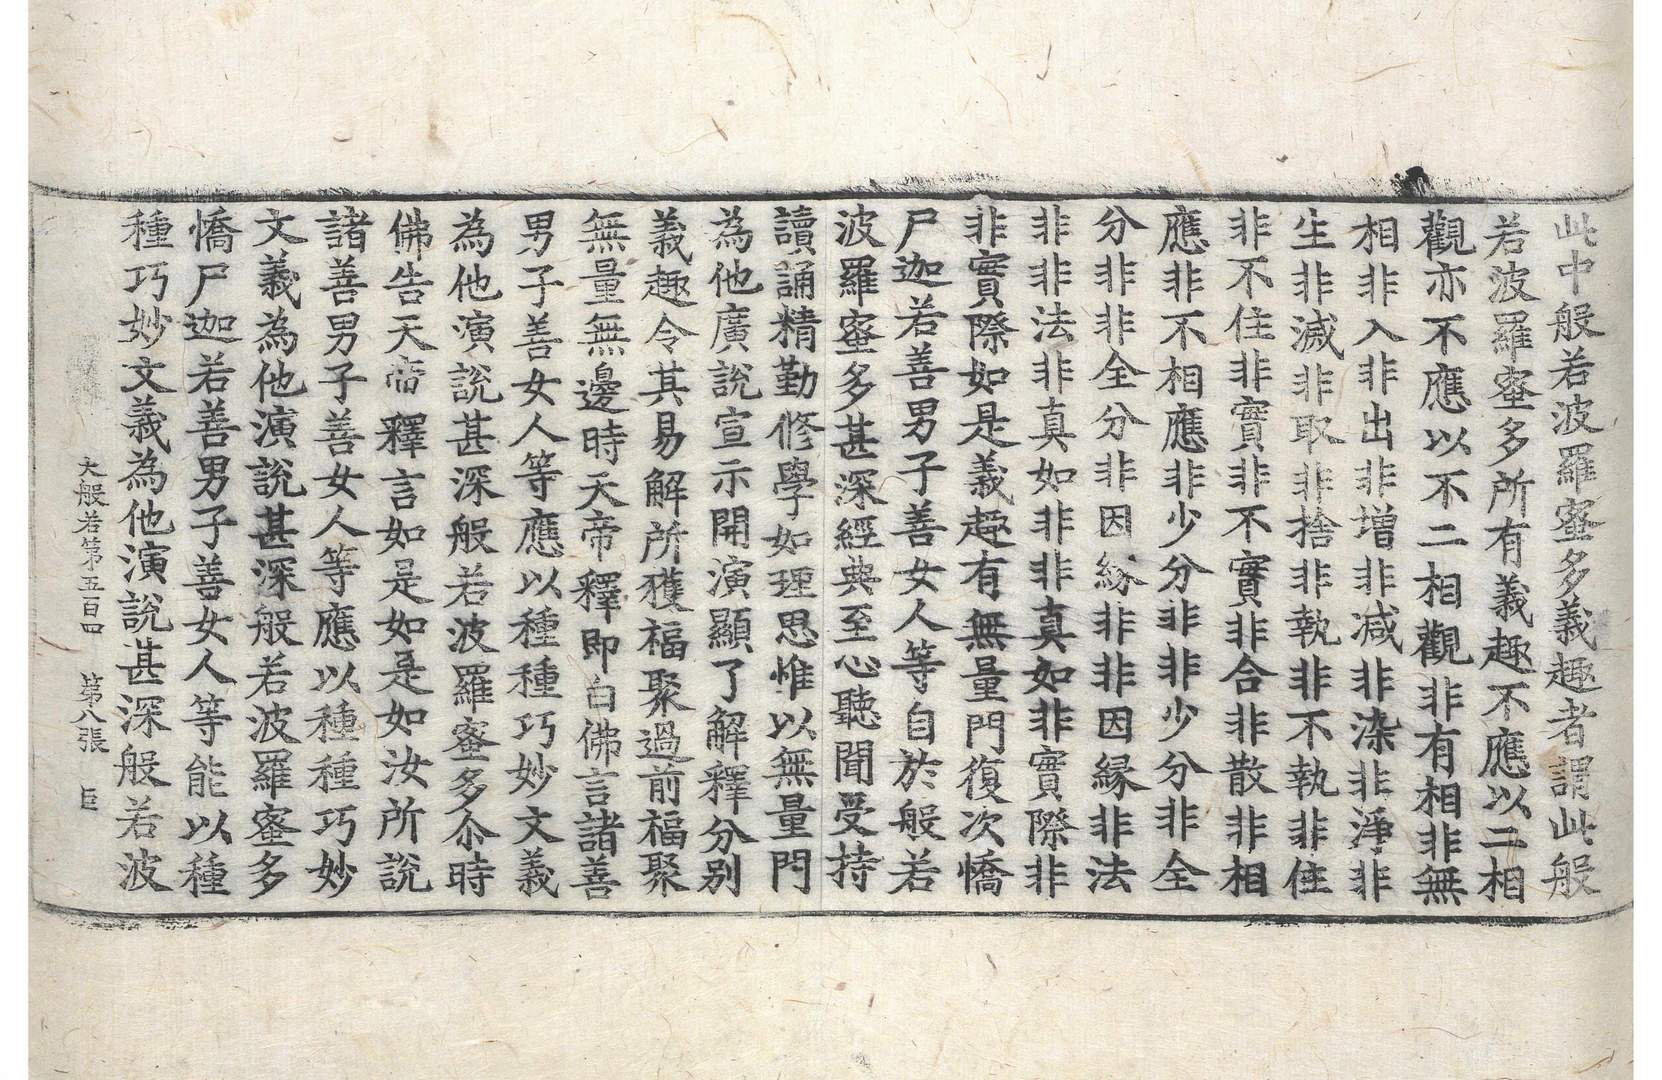 此中般若波羅蜜多義趣者謂此般
若波羅蜜多所有義趣不應以二相
觀亦不應以不二相觀非有相非無
相非入非出非增非減非染非淨非
生非滅非取非捨非執非不執非住
非不住非實非不實非合非散非相
應非不相應非少分非非少分非全
分非非全分非因緣非非因緣非法
非非法非真如非非真如非實際非
非實際如是義趣有無量門復次憍
尸迦若善男子善女人等自於般若
波羅蜜多甚深經典至心聽聞受持
讀誦精勤修學如理思惟以無量門
為他廣說宣示開演顯了解釋分別
義趣令其易解所獲福聚過前福聚
無量無邊時天帝釋即白佛言諸善
男子善女人等應以種種巧妙文義
為他演說甚深般若波羅蜜多尒時
佛告天帝釋言如是如是如汝所說
諸善男子善女人等應以種種巧妙
文義為他演說甚深般若波羅蜜多
憍尸迦若善男子善女人等能以種
種巧妙文義為他演說甚深般若波
大般若第五百四 第八張 臣